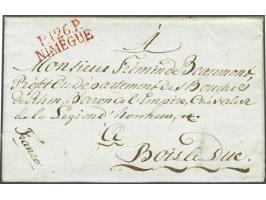 P.126.P.
NIMEGUE
À
Monsieur Frémin de Beaumont,
Préfet du département des Bouches
du Rhin, Baron de l'Empire, Chevalier
de la Légion d'honneur, &
à
Bois le Duc.
Franco